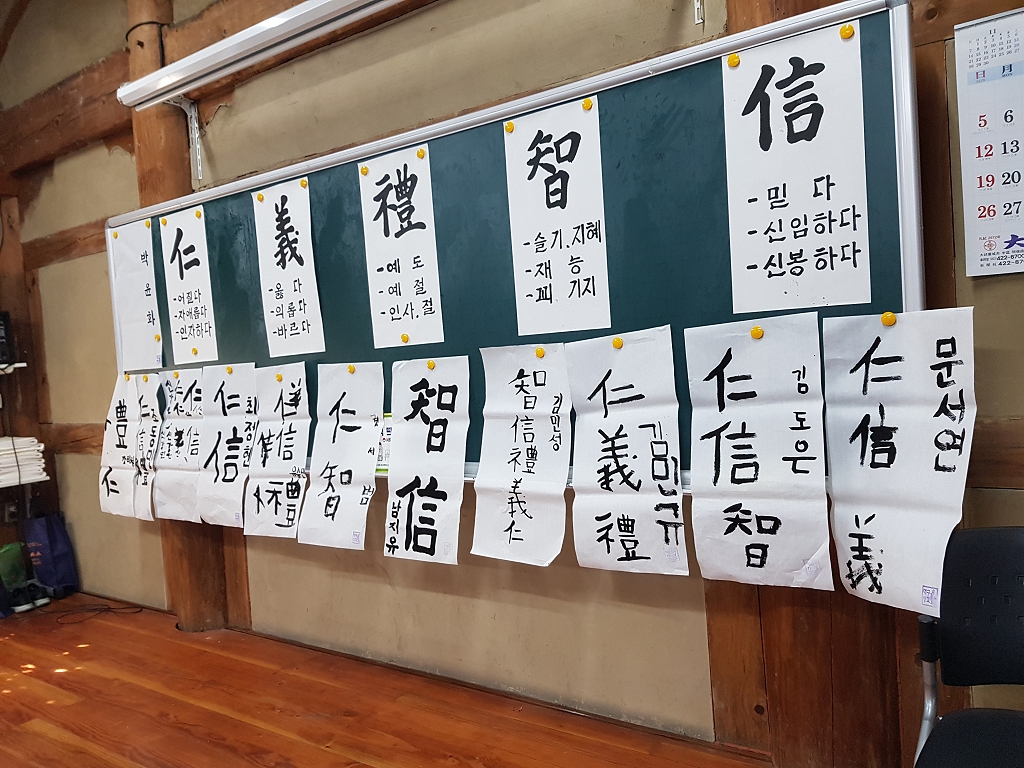 박윤화
仁
-어질다
-자애롭다
-인자하다
義
-옳 다
-의롭다
-바르다
禮
-예 도
-예 절
-인사.절
智
-슬기.지혜
-재 능
-꾀 기지
信
-믿 다
-신임하다
-신봉하다
日 月
5 6
12 13
19 20
26 27
豊
仁
仁
信
최정현
信
仁
智
智
信
남지유
智
信
禮
義
仁
김민성
仁
義
禮
仁
信
智
김도은
仁
信
義
문서연